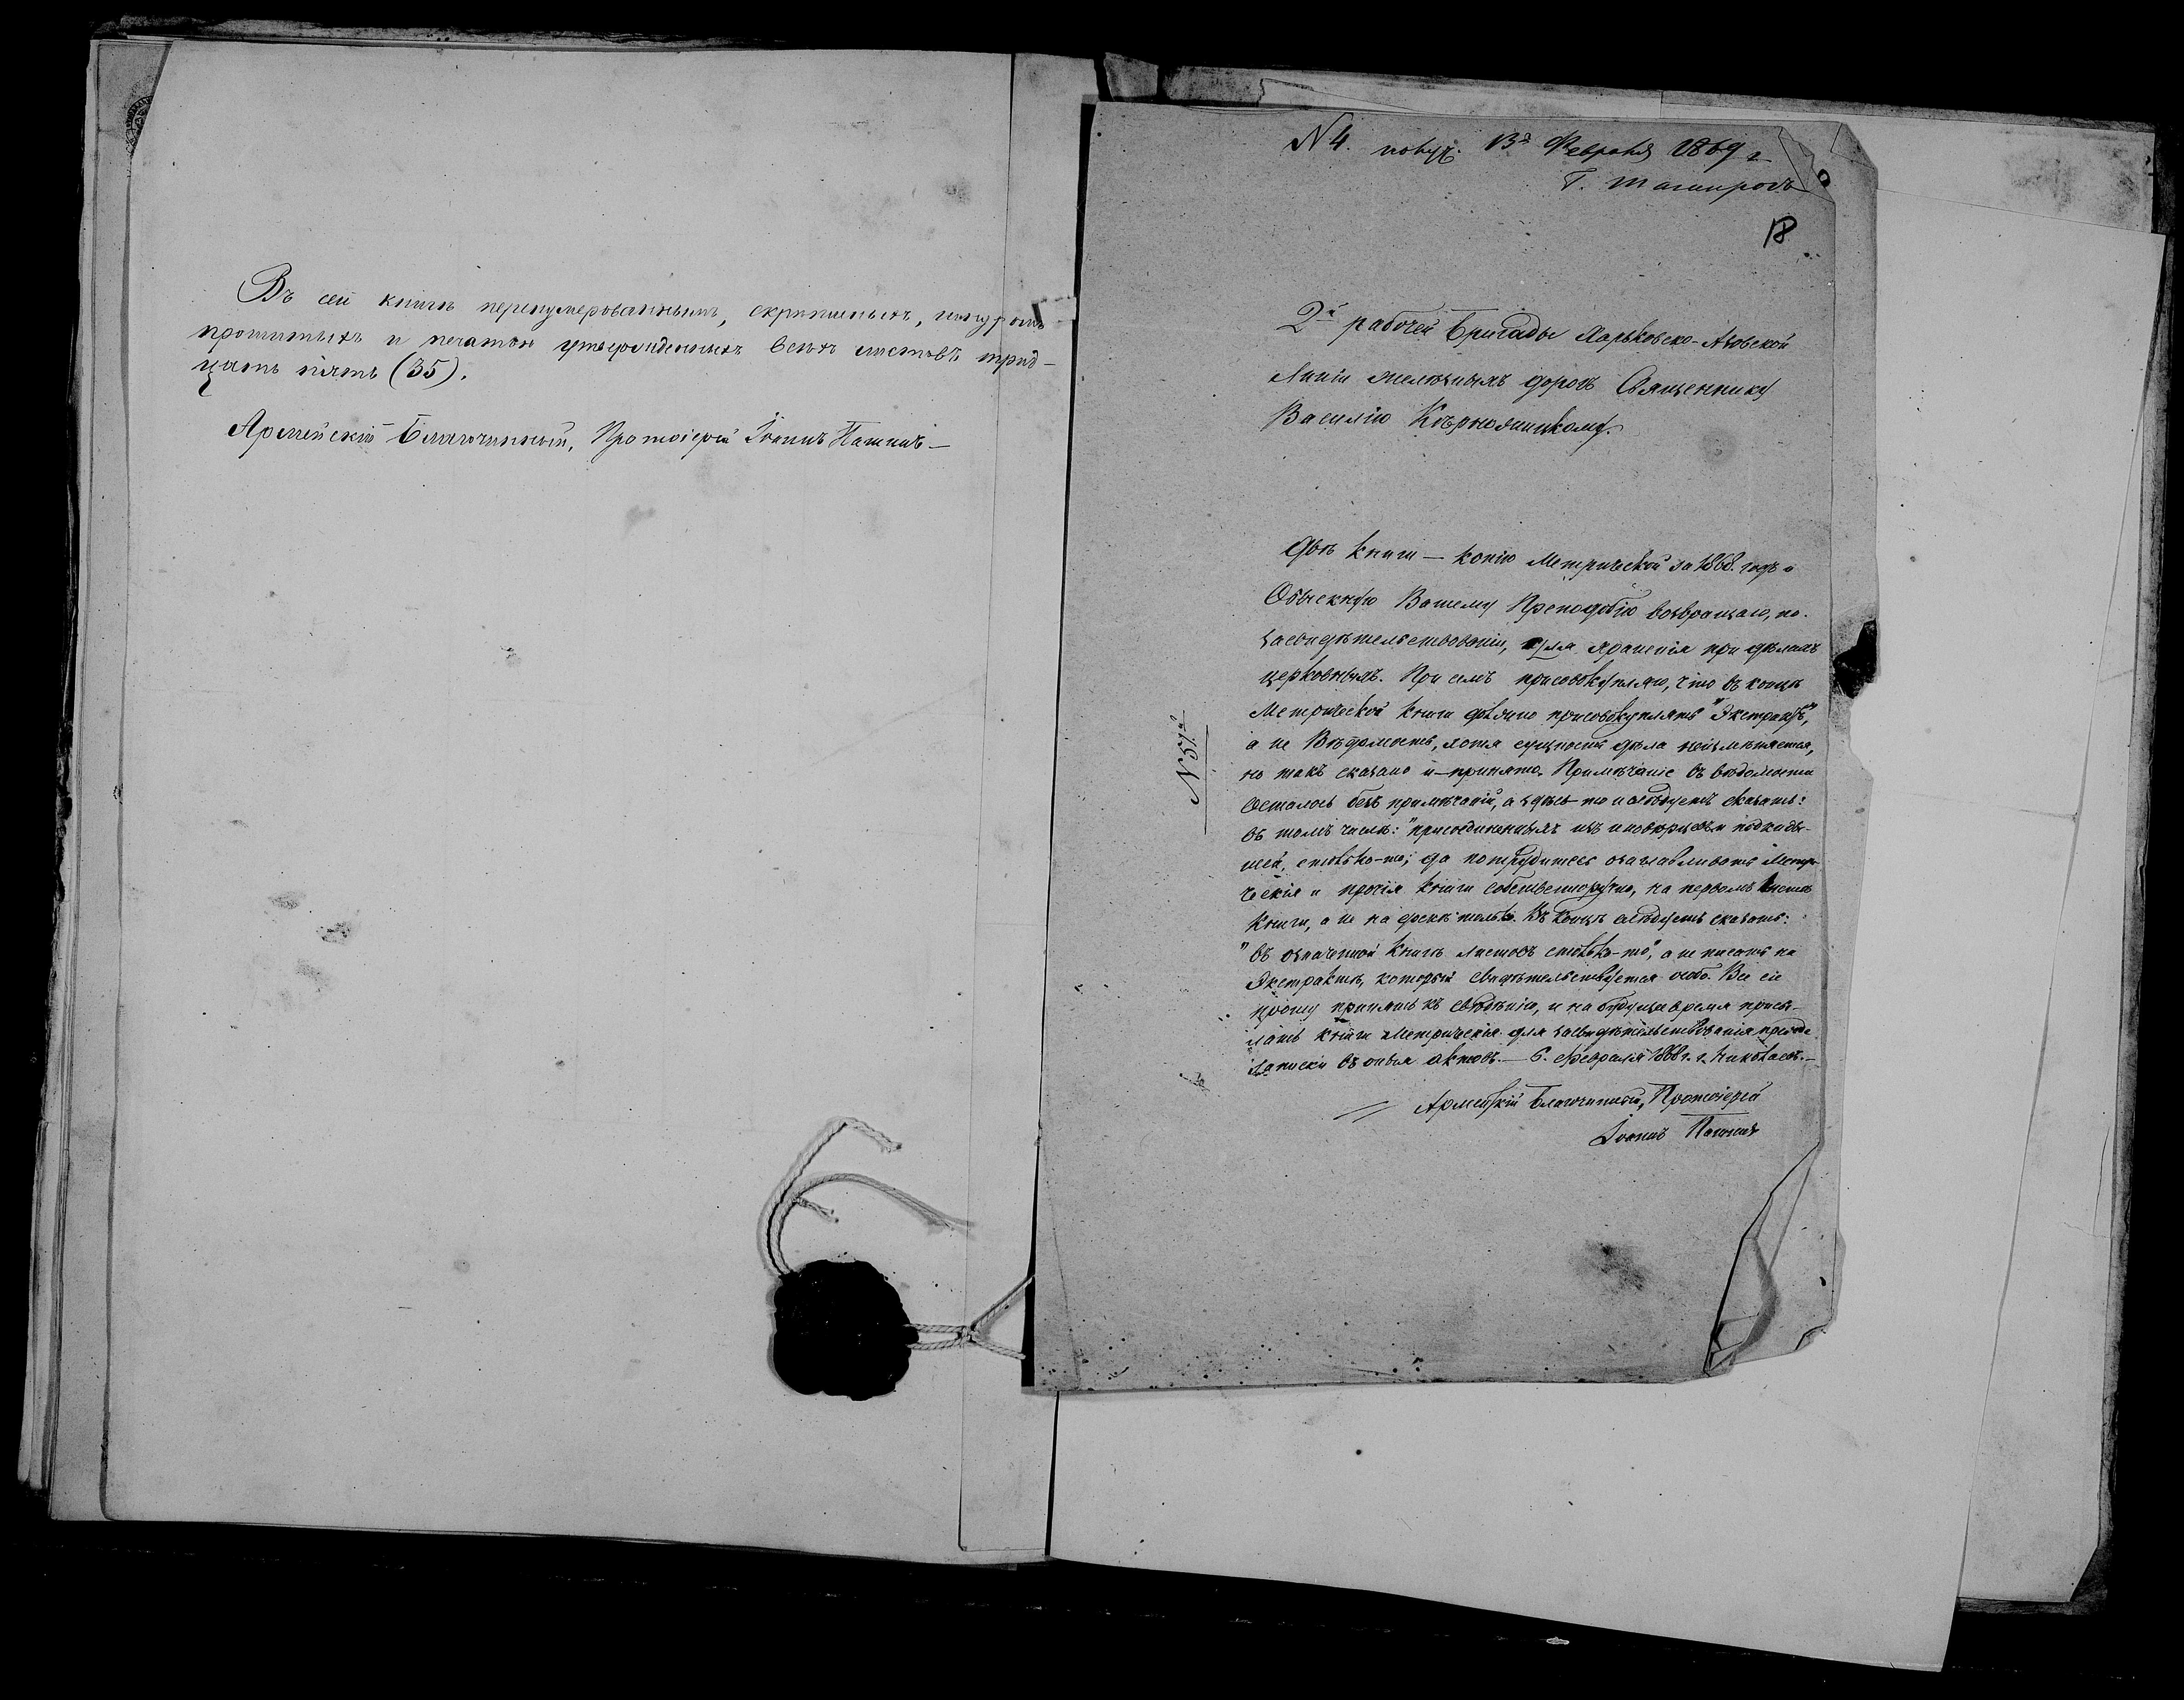 Въ сей книгѣ перенумерованныхъ, скрѣпленныхъ, шнуромъ
прошитыхъ и печатью утвержденныхъ всѣхъ листовъ трид-
цать пять (35).
Армейскій Благочинный, Протоіерей Іоаннъ
N 4. получ. 13го Февраля 1869 г
Г. Таганрогъ
18
2й рабочей бригады Харьковско-Азовской
линіи желѣзныхъ дорогъ Священнику
Василію
Двѣ книги — копію Метрической за 1868. годъ и
Обыскную Вашему Преподобію возвращаю, по
засвидѣтельствованіи, для храненія при дѣлахъ
церковныхъ. При семъ присовокупляю, что въ концѣ
Метрической книги должно присовокуплять "Экстрактъ",
а не Вѣдомость, хотя сущность дѣла неизмѣняется,
но такъ сказано и принято. Примѣчаніе въ вѣдомости
осталось безъ примѣчаній, а здѣсь-то и слѣдуетъ сказать:
въ томъ числѣ: "присоединенныхъ изъ иновѣрцевъ и подкиды-
шей, столько-то; да потрудитесь озаглавливать Метри-
ческія и прочія книги собственноручно, на первомъ листѣ
книги, а не на
Въ концѣ слѣдуетъ сказать:
"въ означенной книгѣ листовъ столько-то", а не писать на
Экстрактѣ, который свидѣтельствуется особо. Все сіе
прошу принять къ свѣдѣнію, и на будущее время присы-
лать книги метрическія для засвидѣтельствованія
записки въ оныя актовъ. — 6. Февраля г. Николаевъ. —
Армейскій Благочинный, Протоіерей
Іоаннъ